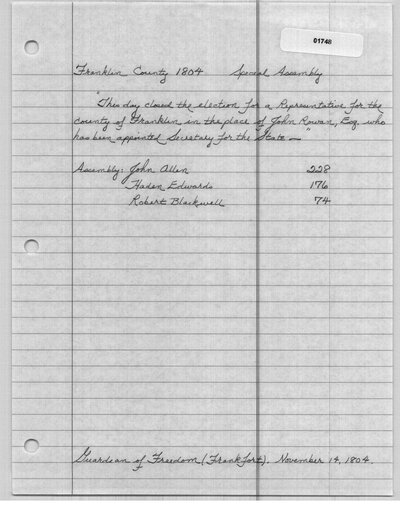 01748
Franklin County 1804 Special Assembly
"This day closed the election for a Representative for the
county of Franklin in the place of John Rowan, Esq. who
has been appointed Secretary for the State—"
Assembly: John Allen 228
Haden Edwards 176
Robert Blackwell 74
Guardean of Freedom (Frankfort). November 14, 1804.